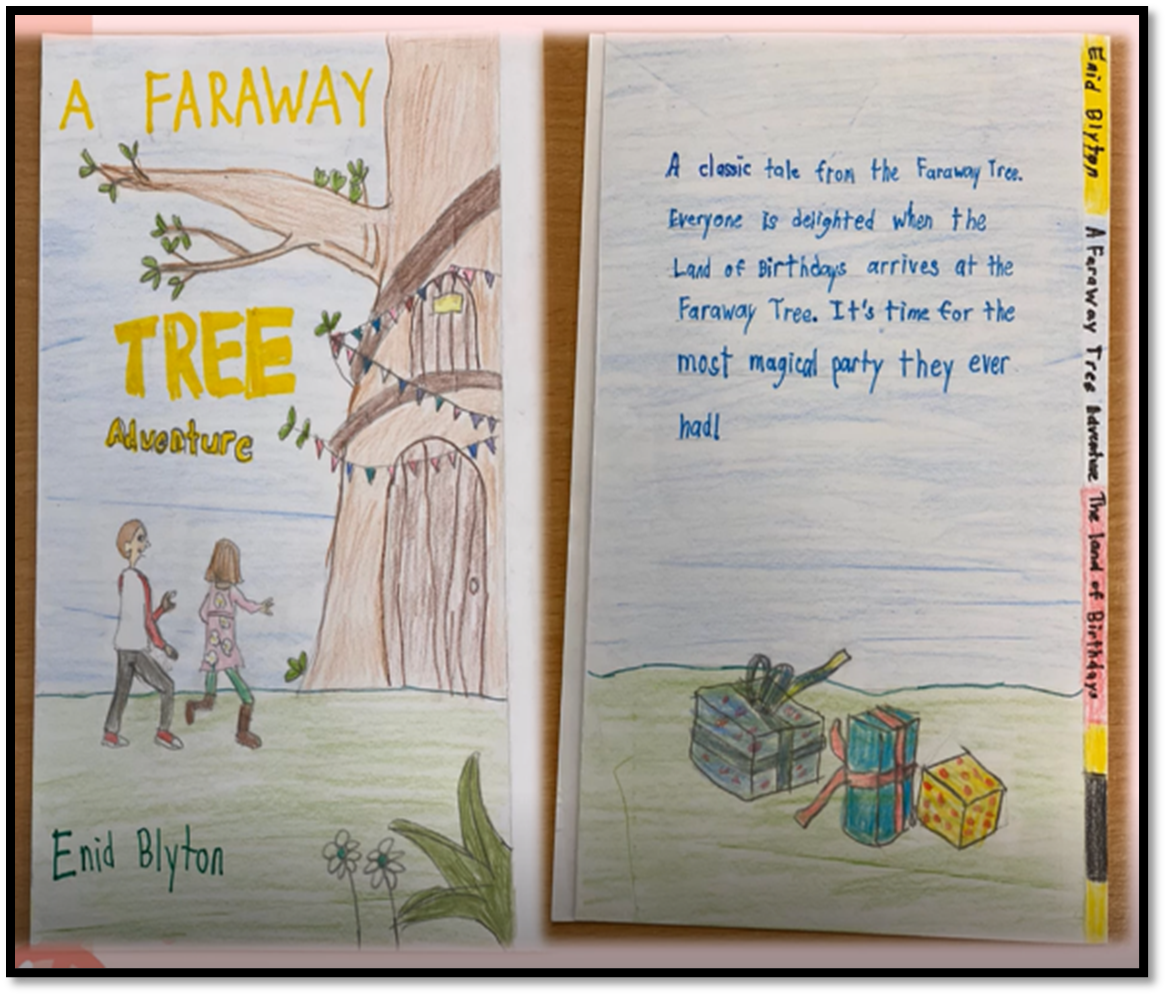 A FARAWAY
TREE
Adventure
Enid Blyton
A classic tale from the Faraway Tree.
Everyone is delighted when the
Land of Birthdays arrives at the
Faraway Tree. It's time for the
most magical party they ever
had!
Enid Blyton A Faraway Tree Adventure The land of Birthdays